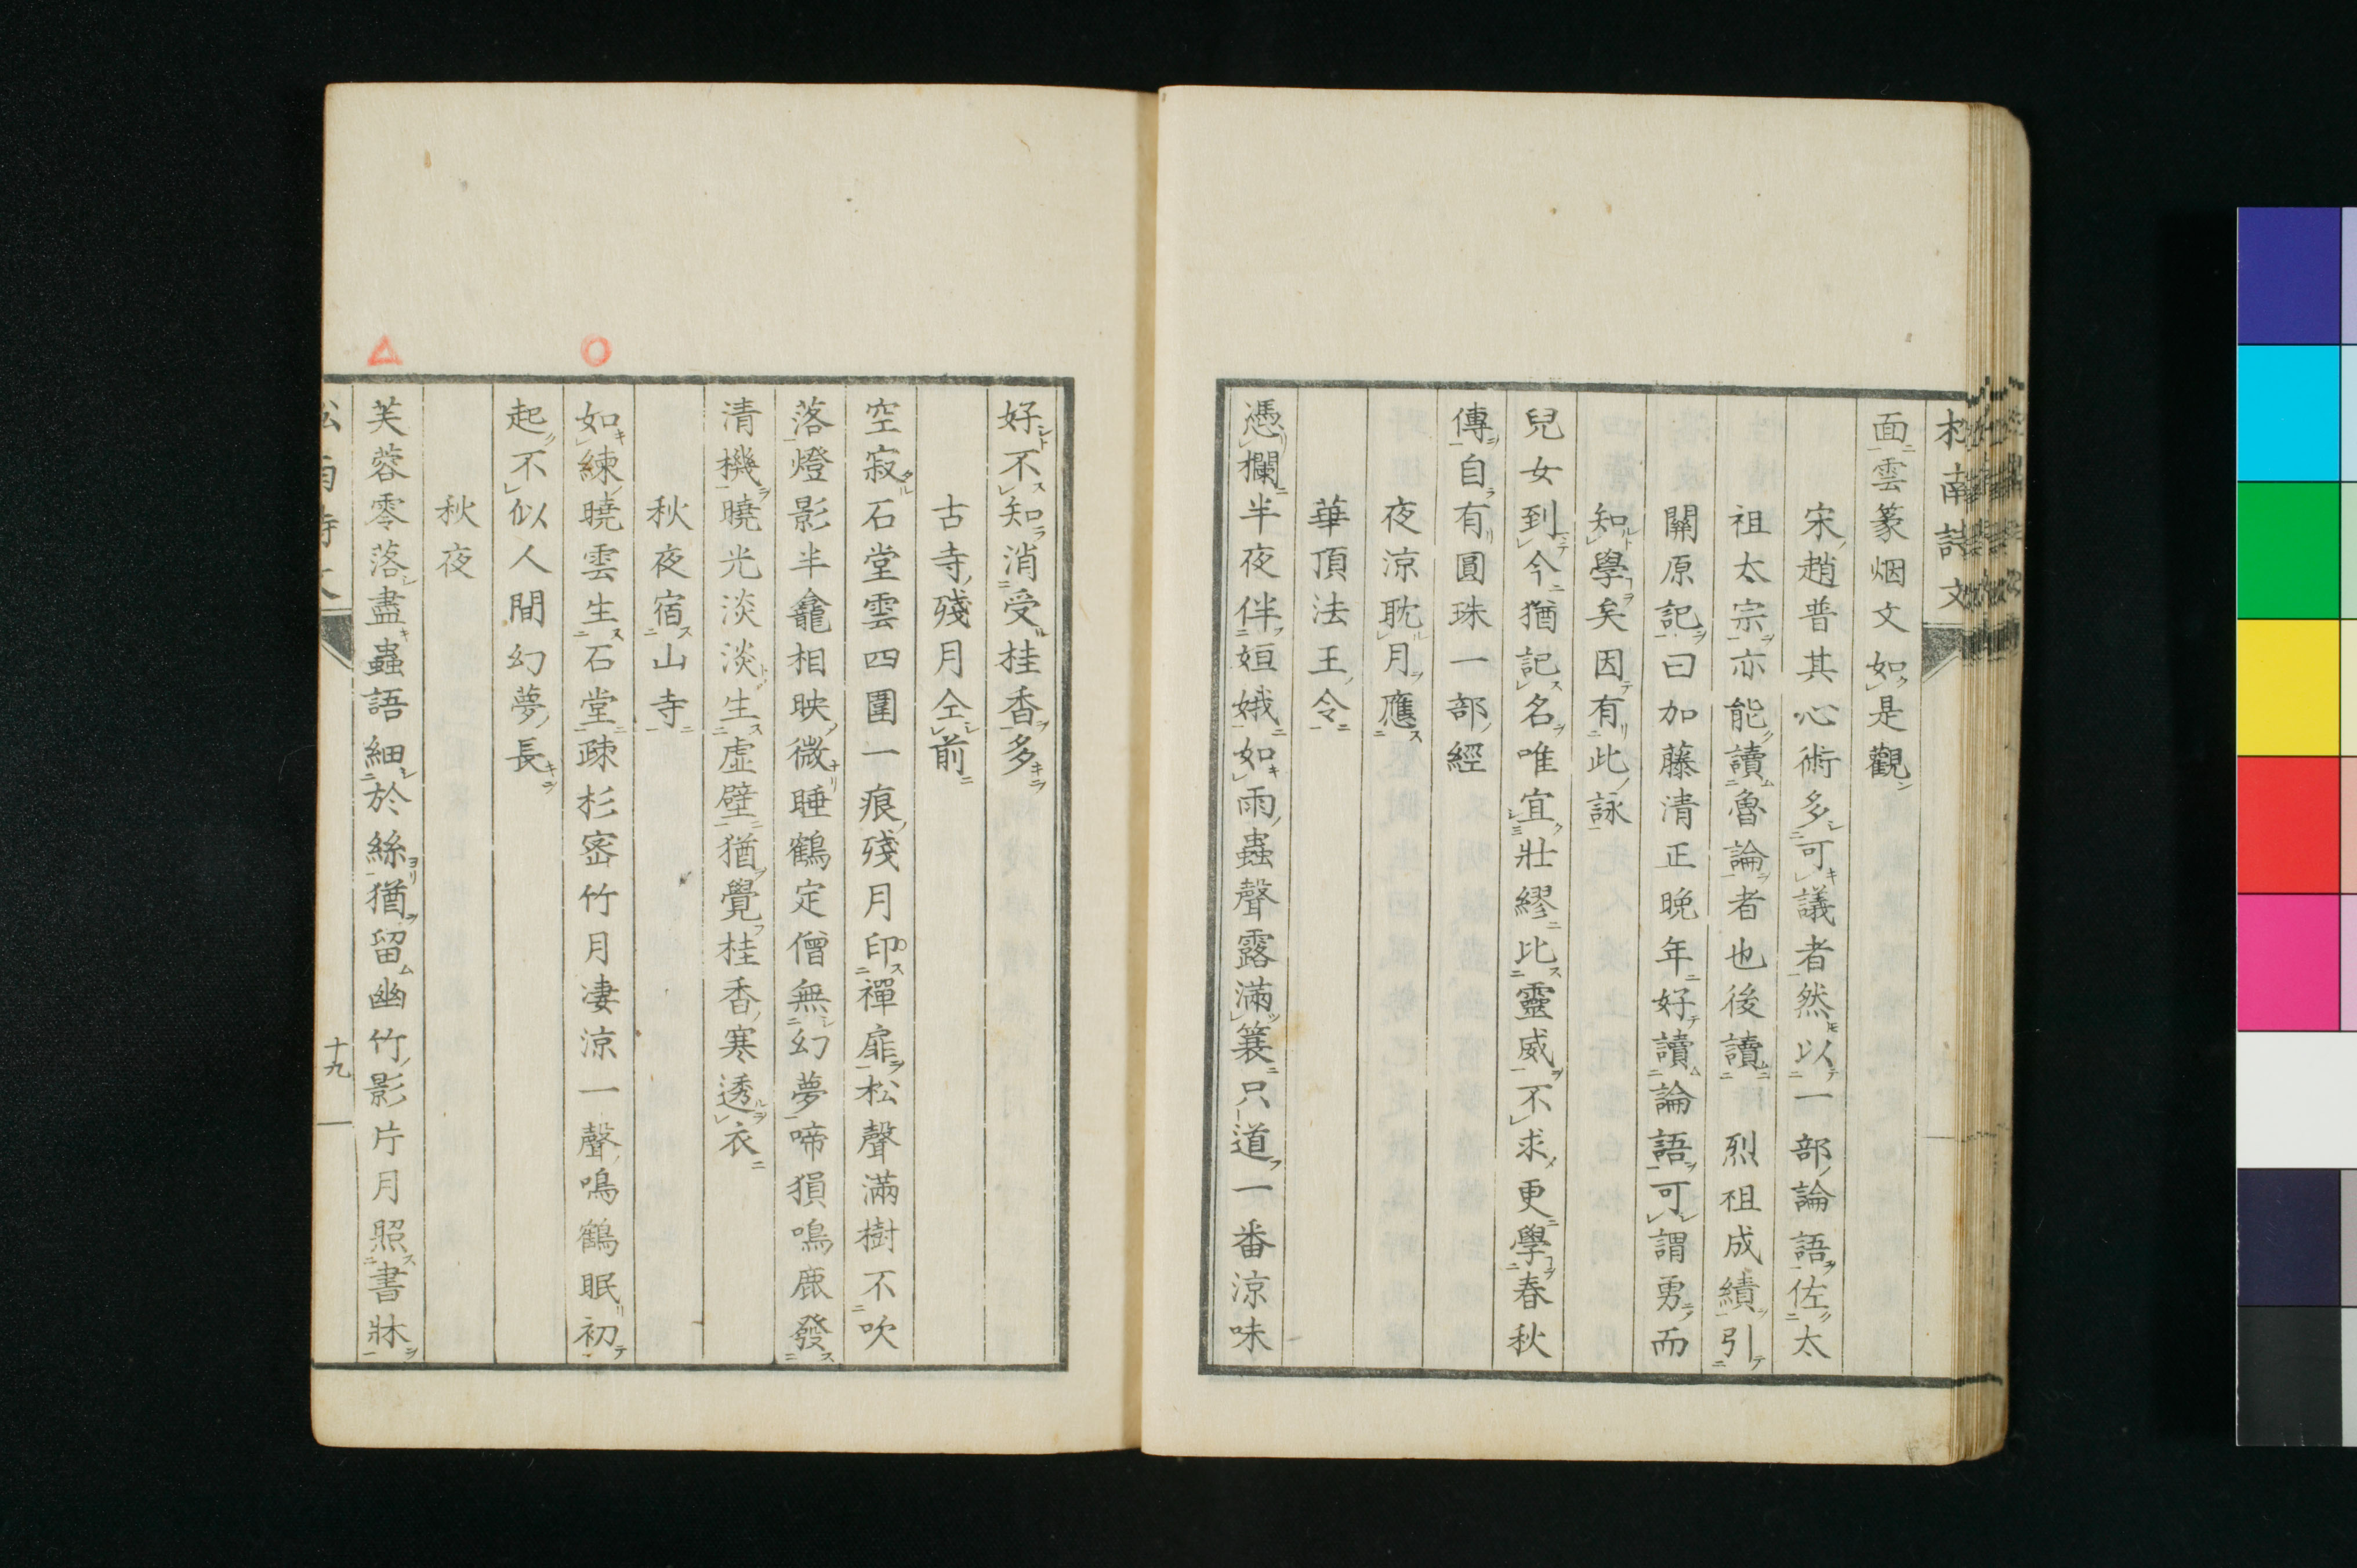 松南詩文
面雲篆烟文如是觀
宋趙普其心術多可議者然以一部論語佐太
祖太宗亦能讀魯論者也後讀 烈祖成績引
關原記曰加藤清正晚年好讀論語可謂勇而
知學矣因有此詠
兒女到今猶記名唯宜壯繆比靈威不求更學春秋
傳自有圓珠一部經
夜涼耽月應
華頂法王令
憑欄半夜伴姮娥如雨蟲聲露滿簑只道一番涼味
好不知消受桂香多
古寺殘月仝前
空寂石堂雲四圍一痕殘月印禪扉松聲滿樹不吹
落燈影半龕相映微睡鶴定僧無幻夢啼猿鳴鹿發
清機曉光淡淡生虛壁猶覺桂香寒透衣
秋夜宿山寺
如練曉雲生石堂疎杉密竹月凄涼一聲鳴鶴眠初
起不似人間幻夢長
秋夜
芙蓉零落盡蟲語細於絲猶留幽竹影片月照書牀
松南詩文
十九